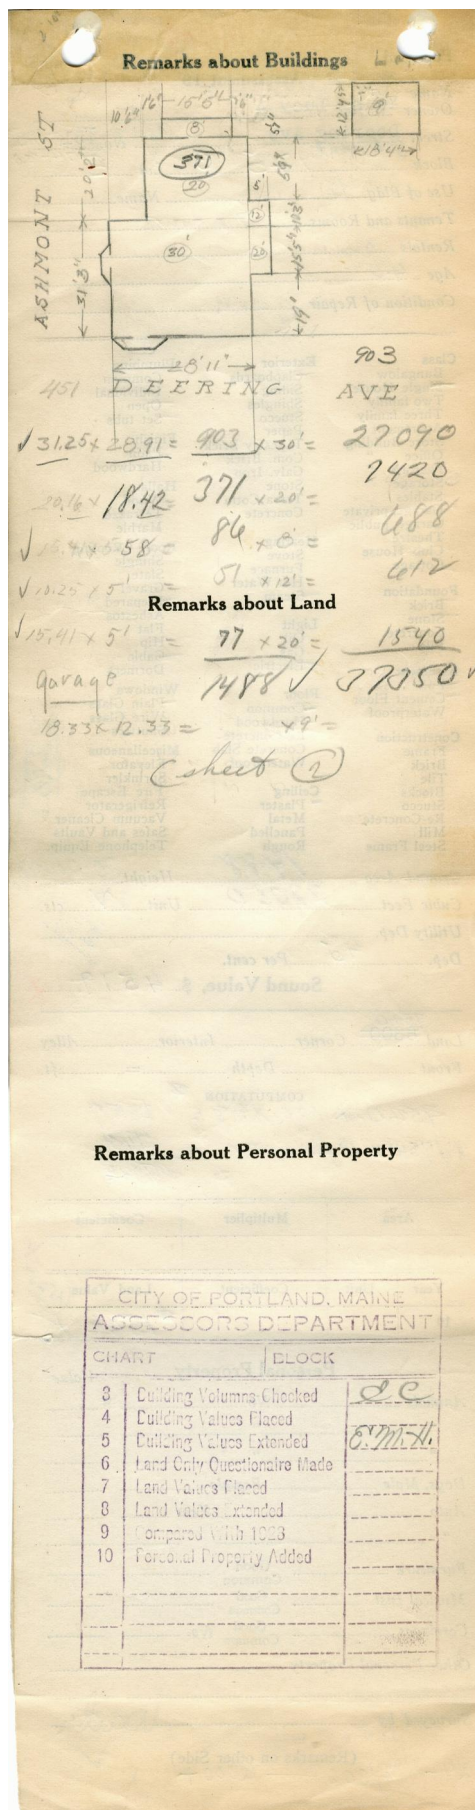 Remarks about Buildings
ASHMONT ST
10'6"
1'6"
15'5"
8'
371
20
20'2"
5'
12'
20'
30'
31'3"
28'11"
12'4"
9'
18'4"
903
451 DEERING AVE
√ 31.25 x 28.91 = 903 x 30' = 27090
20.16 x 18.42 371 x 20' = 7420
√ 15.41 x 5.58 = 86 x 8' = 688
√ 10.25 x 5' = 51 x 12' = 612
Remarks about Land
√ 15.41 x 5' 77 x 20' = 1540
Garage 1488 √ 37350 √
18.33 x 12.33 = x 9' =
(sheet 2)
Remarks about Personal Property
CITY OF PORTLAND, MAINE
ASSESSORS DEPARTMENT
CHART BLOCK
3 Building Volumns Checked
4 Building Values Placed
5 Building Values Extended E.M.H.
6 Land Only Questionaire Made
7 Land Values Placed
8 Land Values Extended
9 Compared With 1923
10 Personal Property Added